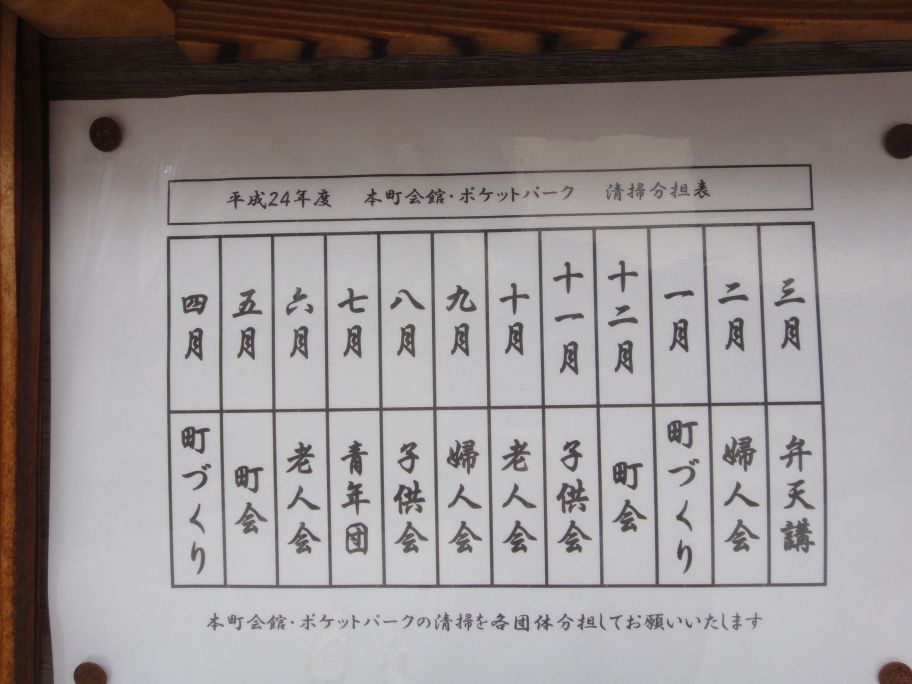 平成24年度　本町会館・ポケットパーク　清掃分担表
四月　五月　六月　七月　八月　九月　十月　十一月　十二月　一月　二月　三月
町づくり　町会　老人会　青年団　子供会　婦人会　老人会　子供会　町会　町づくり　婦人会　弁天講
本町会館・ポケットパークの清掃を各団体分担してお願いいたします